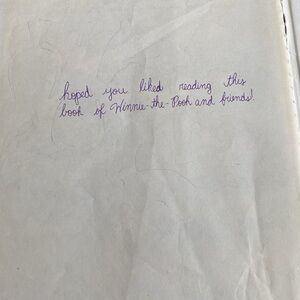 hoped you liked reading this
book of Winnie-the-Pooh and friends!